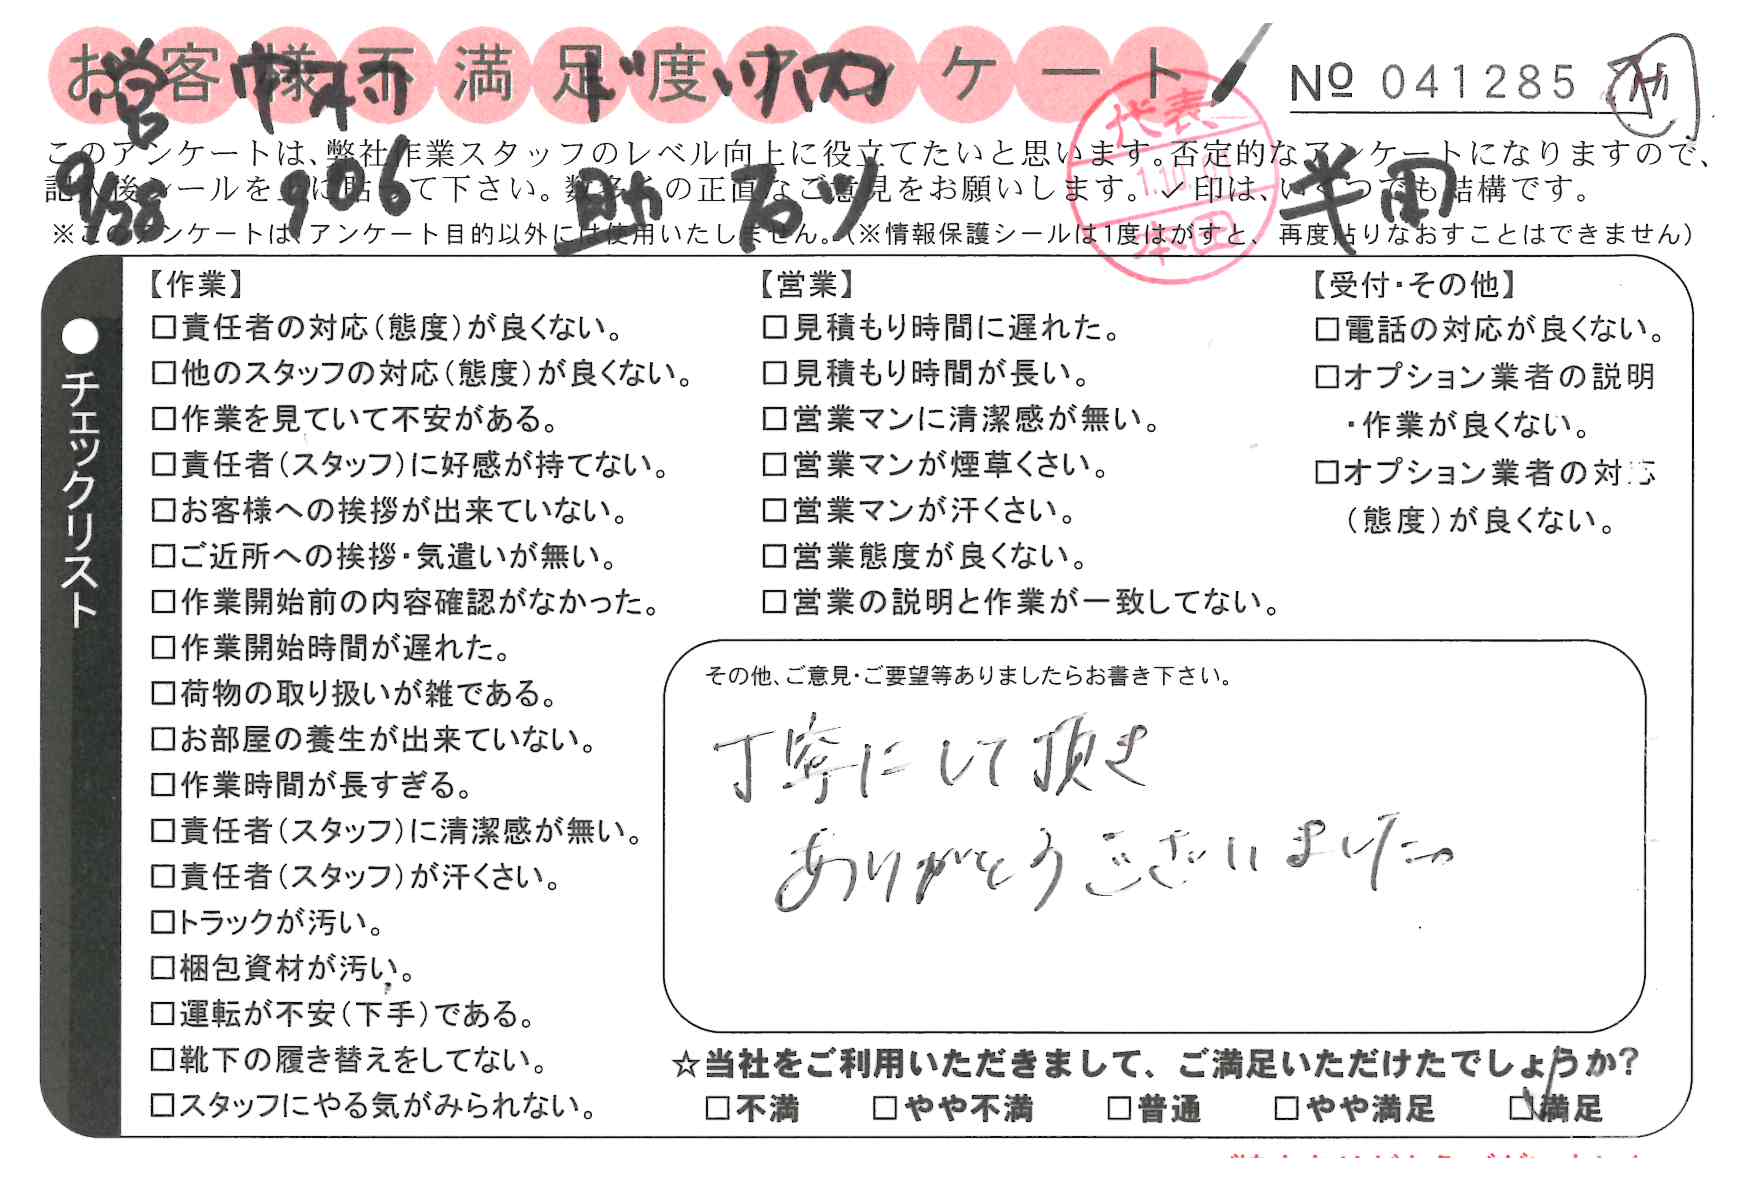 お客様不満足度アンケート
No 041285
営 中村 ド
9/28 906 助 半田
代表
本田
このアンケートは、弊社作業スタッフのレベル向上に役立てたいと思います。否定的なアンケートになりますので、
記入後シールを上に貼って下さい。数多くの正直なご意見をお願いします。✓印は、いくつでも結構です。
※このアンケートは、アンケート目的以外には使用いたしません。(※情報保護シールは1度はがすと、再度貼りなおすことはできません)
●チェックリスト
【作業】
□責任者の対応(態度)が良くない。
□他のスタッフの対応(態度)が良くない。
□作業を見ていて不安がある。
□責任者(スタッフ)に好感が持てない。
□お客様への挨拶が出来ていない。
□ご近所への挨拶・気遣いが無い。
□作業開始前の内容確認がなかった。
□作業開始時間が遅れた。
□荷物の取り扱いが雑である。
□お部屋の養生が出来ていない。
□作業時間が長すぎる。
□責任者(スタッフ)に清潔感が無い。
□責任者(スタッフ)が汗くさい。
□トラックが汚い。
□梱包資材が汚い。
□運転が不安(下手)である。
□靴下の履き替えをしてない。
□スタッフにやる気がみられない。
【営業】
□見積もり時間に遅れた。
□見積もり時間が長い。
□営業マンに清潔感が無い。
□営業マンが煙草くさい。
□営業マンが汗くさい。
□営業態度が良くない。
□営業の説明と作業が一致してない。
【受付・その他】
□電話の対応が良くない。
□オプション業者の説明
・作業が良くない。
□オプション業者の対応
(態度)が良くない。
その他、ご意見・ご要望等ありましたらお書き下さい。
丁寧にして頂き
ありがとうございました。
☆当社をご利用いただきまして、ご満足いただけたでしょうか?
□不満 □やや不満 □普通 □やや満足 ☑満足